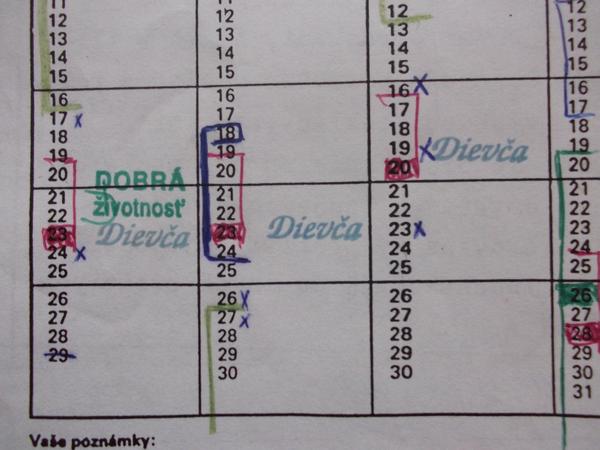 11
12
13
14
15
16
17 x
18
19
20
21
22
23
24 x
25
26
27
28
29
DOBRÁ
životnosť
Dievča
11
12
13
14
15
16
17
18
19
20
21
22
23
24
25
26 x
27 x
28
29
30
Dievča
12
13
14
15
16 x
17
18
19 x
20
21
22
23 x
24
25
26
27
28
29
30
Dievča
12
13
14
15
16
17
18
19
20
21
22
23
24
25
26
27
28
29
30
31
Vaše poznámky: